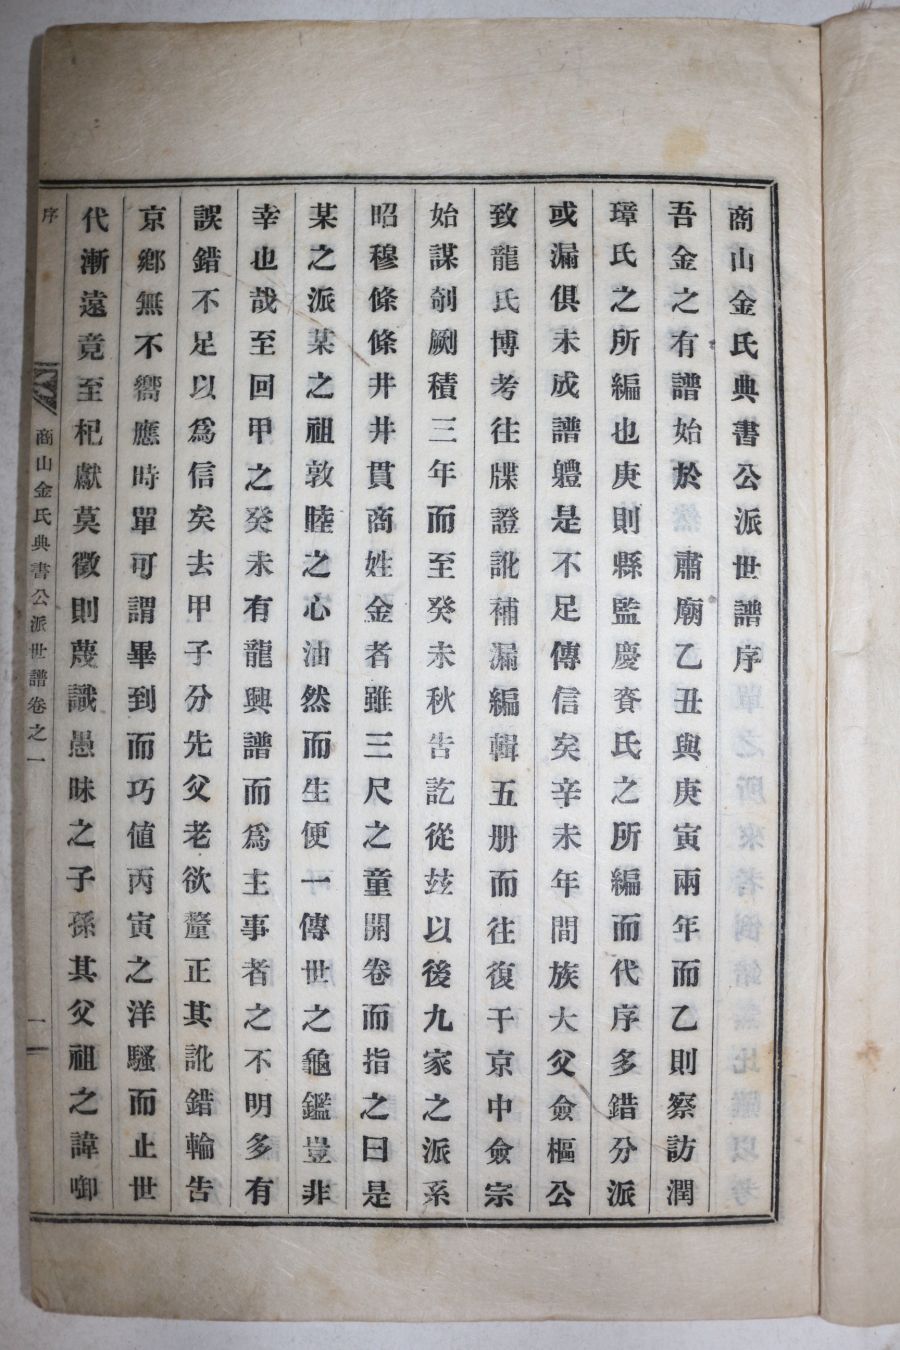 商山金氏典書公派世譜序
吾金之有譜始於　肅廟乙丑與庚寅兩年而乙則察訪潤
璋氏之所編也庚則縣監慶賚氏之所編而代序多錯分派
或漏俱未成譜軆是不足傳信矣辛未年間族大父僉樞公
致龍氏博考往牒證訛補漏編輯五册而往復于京中僉宗
始謀剞劂積三年而至癸未秋告訖從玆以後九家之派系
昭穆條條井井貫商姓金者雖三尺之童開卷而指之曰是
某之派某之祖敦睦之心油然而生便一傳世之龜鑑豈非
幸也哉至回甲之癸未有龍興譜而爲主事者之不明多有
誤錯不足以爲信矣去甲子分先父老欲釐正其訛錯輪告
京鄕無不嚮應時單可謂畢到而巧値丙寅之洋騷而止世
代漸遠竟至杞獻莫徵則蔑識愚昧之子孫其父祖之諱啣
序
商山金氏典書公派世譜卷之一
一